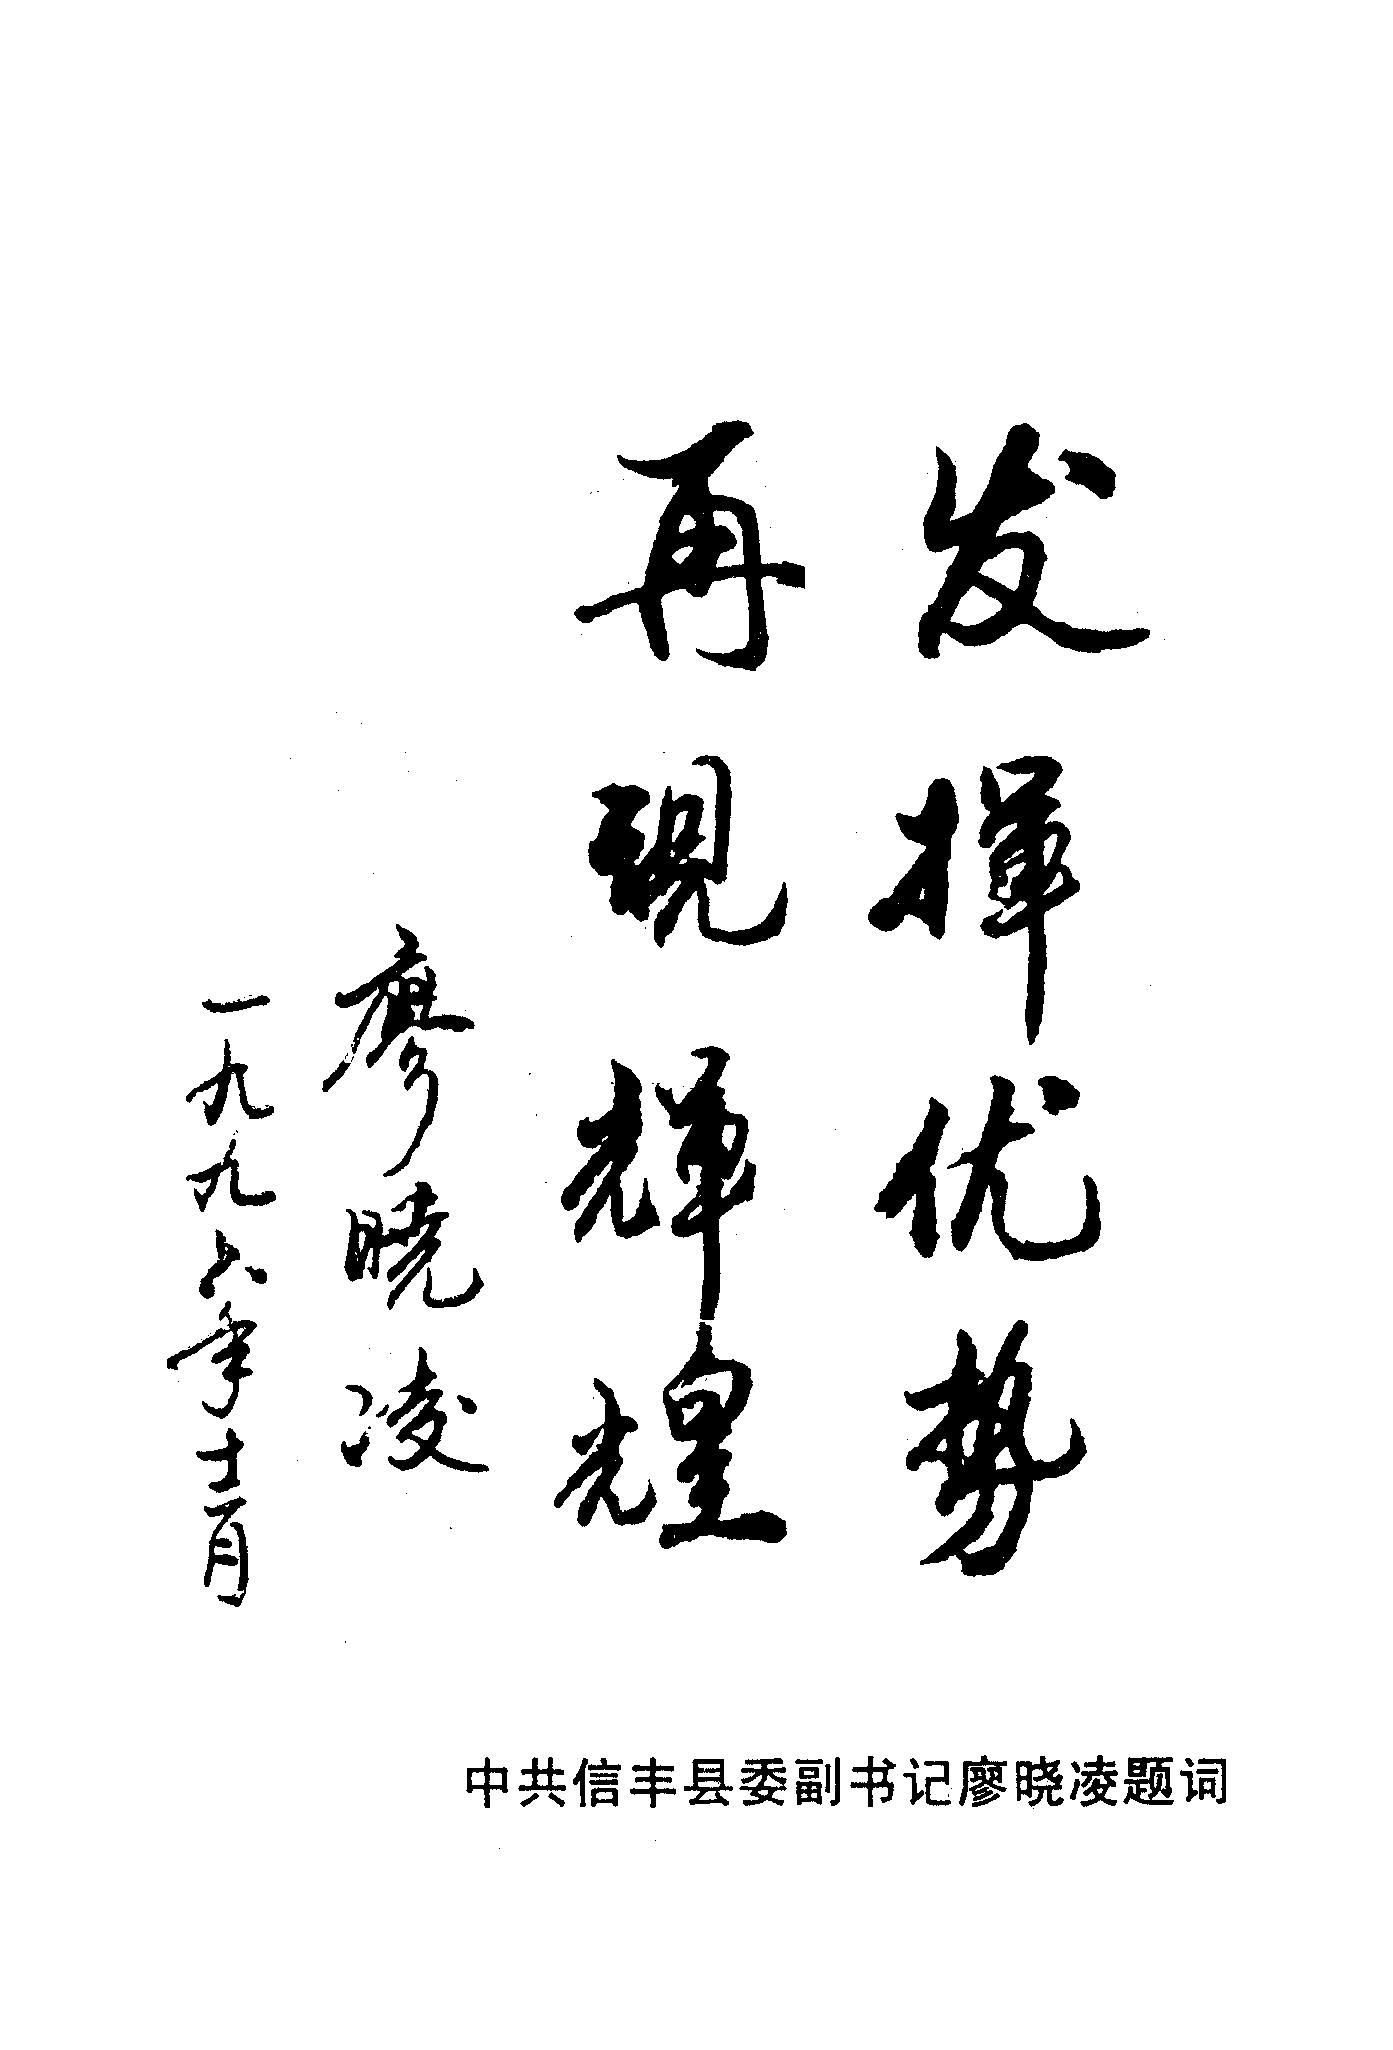 发揮优势
再现輝煌
廖晓凌
一九九六年十二月
中共信丰县委副书记廖晓凌题词